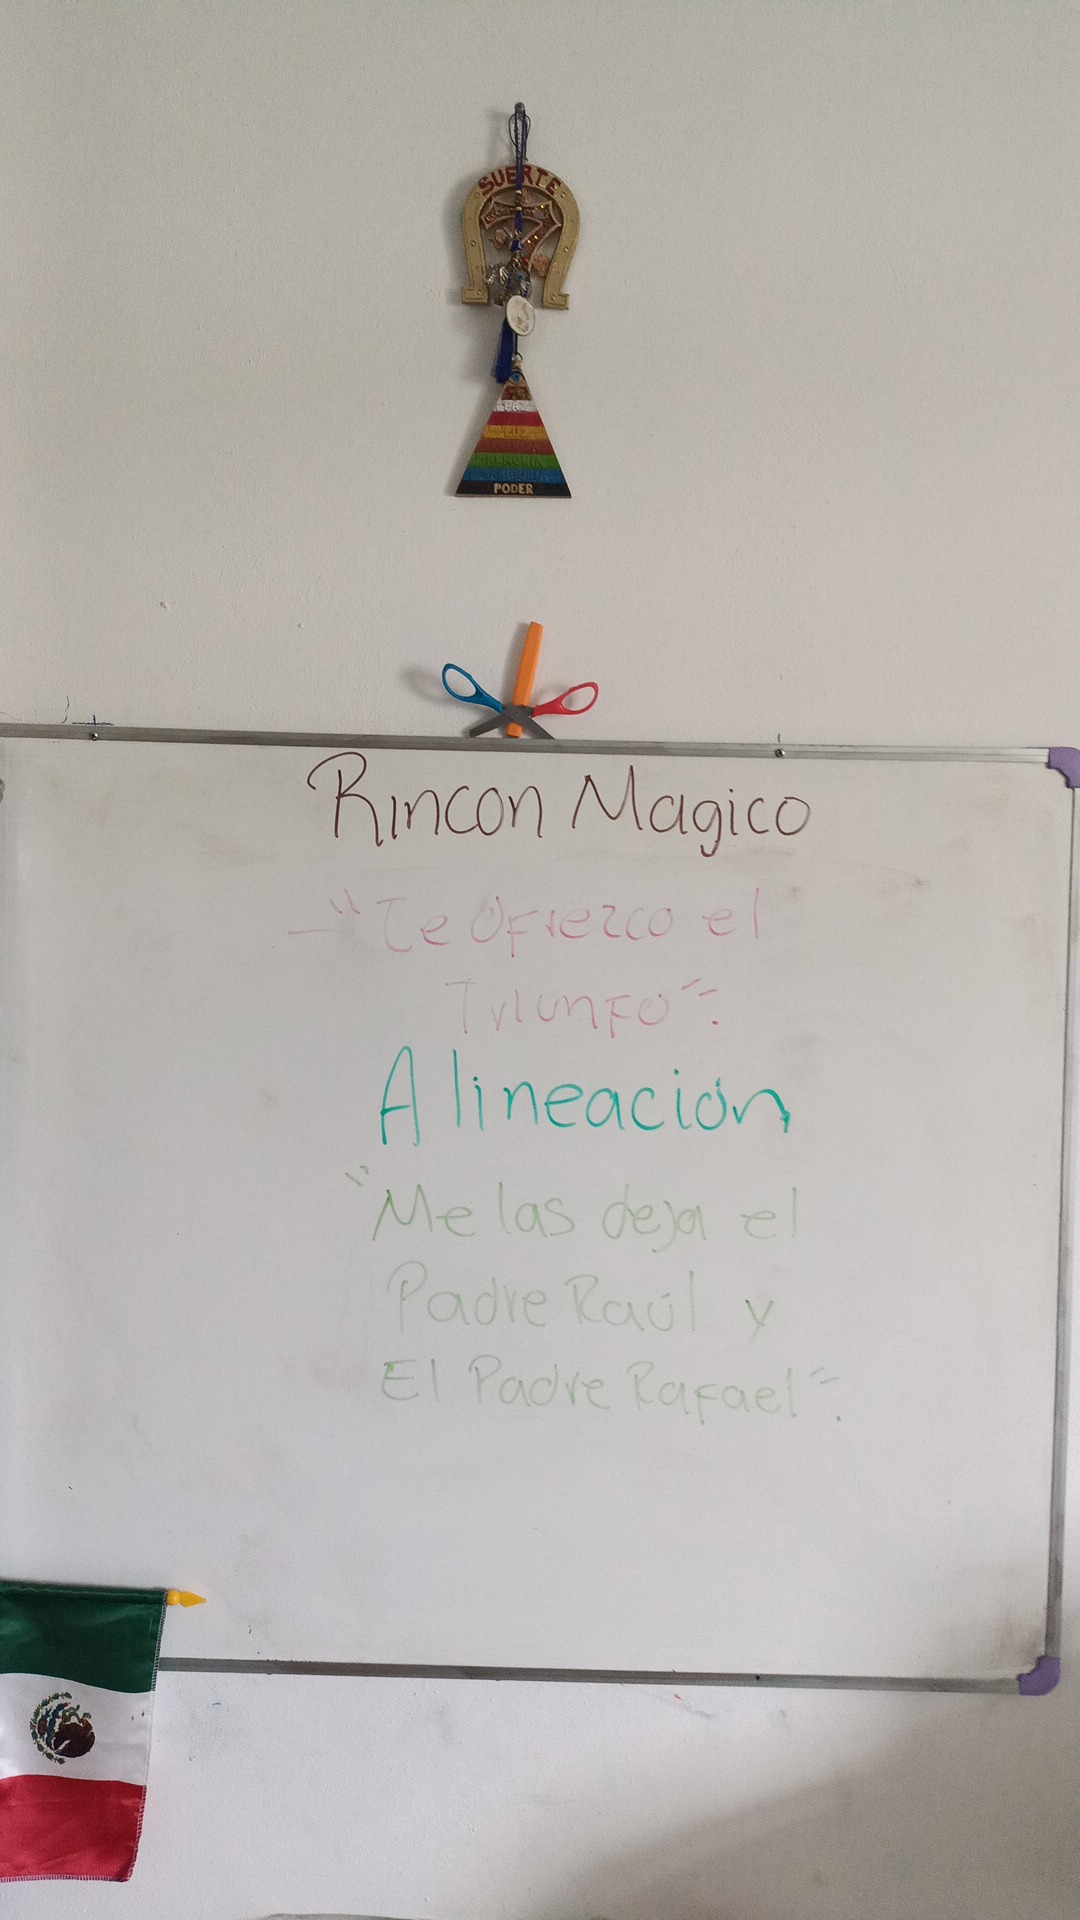 SUERTE
PODER
Rincon Magico
- "Te Ofrezco el
Triunfo".
Alineación
"Me las deja el
Padre Raúl y
El Padre Rafael".